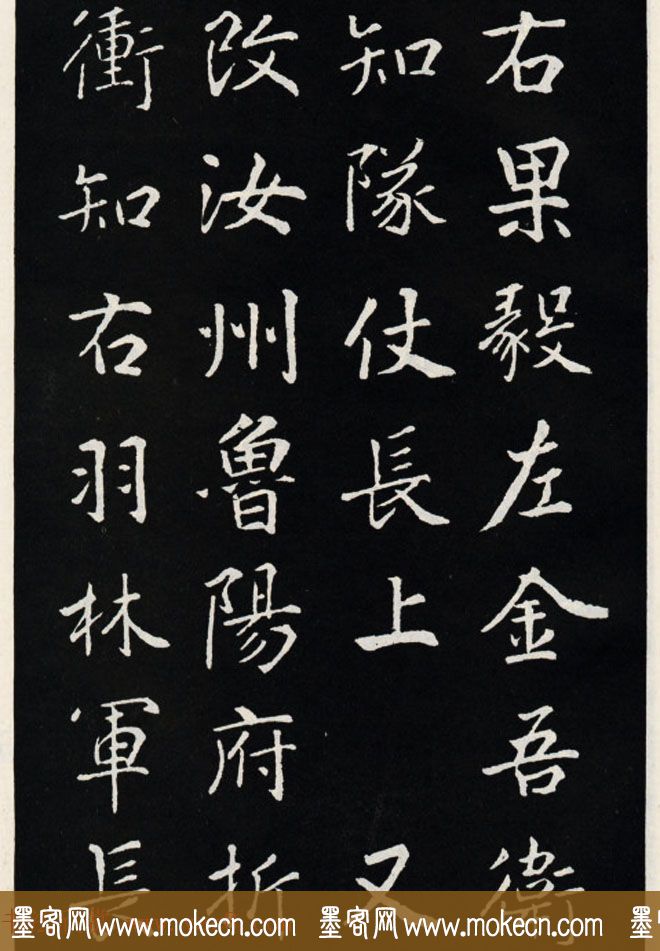 右果毅左金吾衛
知隊仗長上 又
改汝州魯陽府折
衝知右羽林軍長
墨客网 www.mokecn.com 墨客网 www.mokecn.com 墨